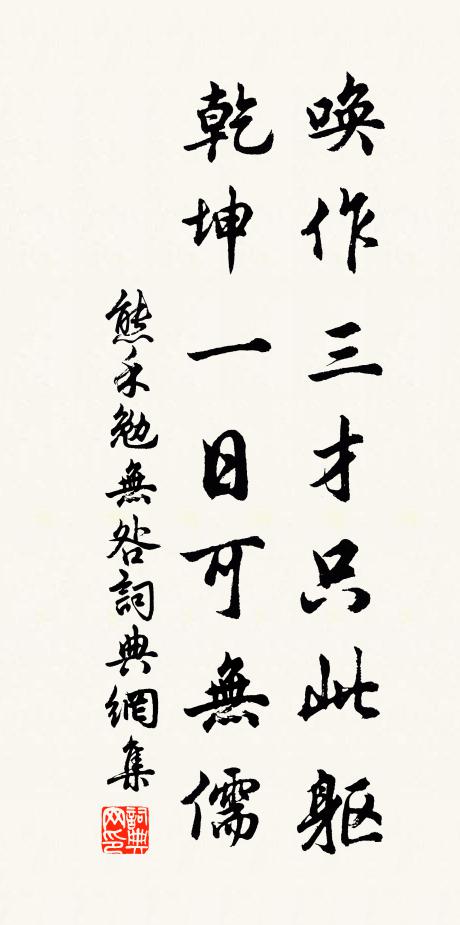 喚作三才只此軀
乾坤一日可無儒
熊禾勉無咎詞典網集
詞典网印